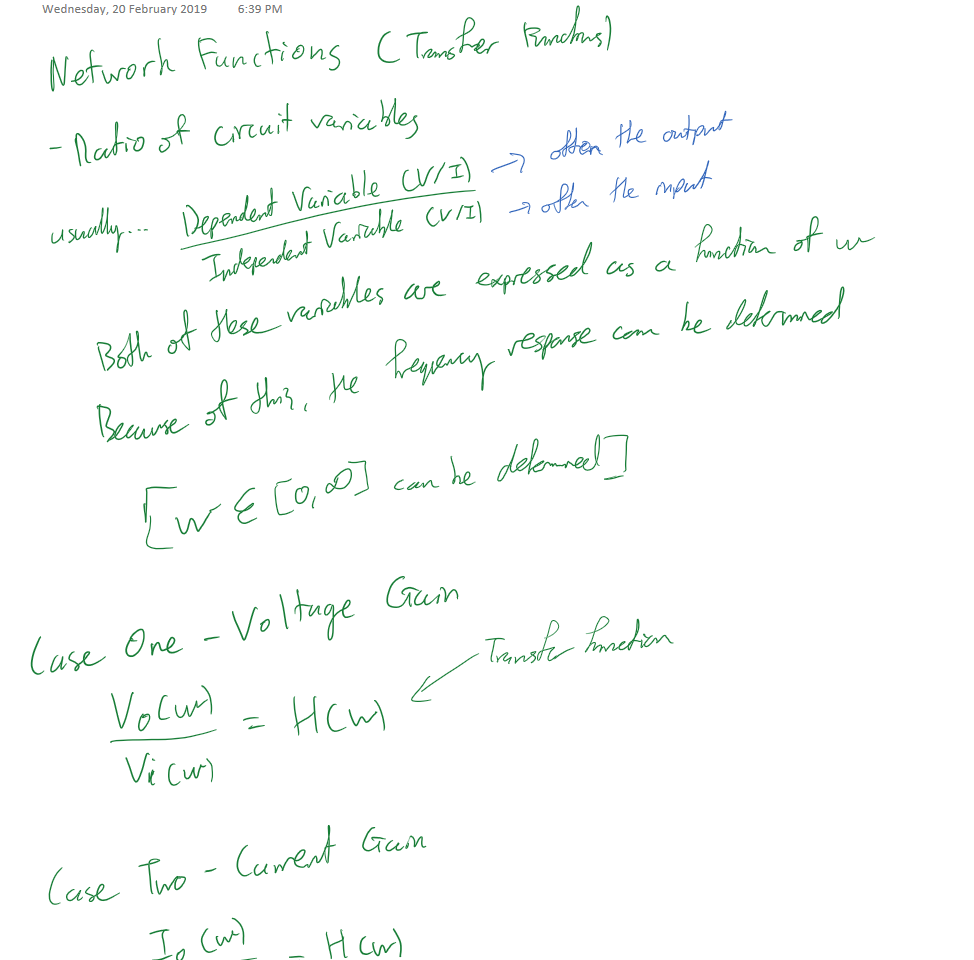 Wednesday, 20 February 2019 6:39 PM
Network Functions (Transfer Functions)
- Ratio of circuit variables
usually... Dependent Variable (V/I) → often the output
Independent Variable (V/I) → often the input
Both of these variables are expressed as a function of w
Because of this, the frequency response can be determined
[w ∈ [0,∞] can be determined]
Case One - Voltage Gain
Transfer function
Vo(w)
= H(w)
Vi(w)
Case Two - Current Gain
Io(w)
= H(w)